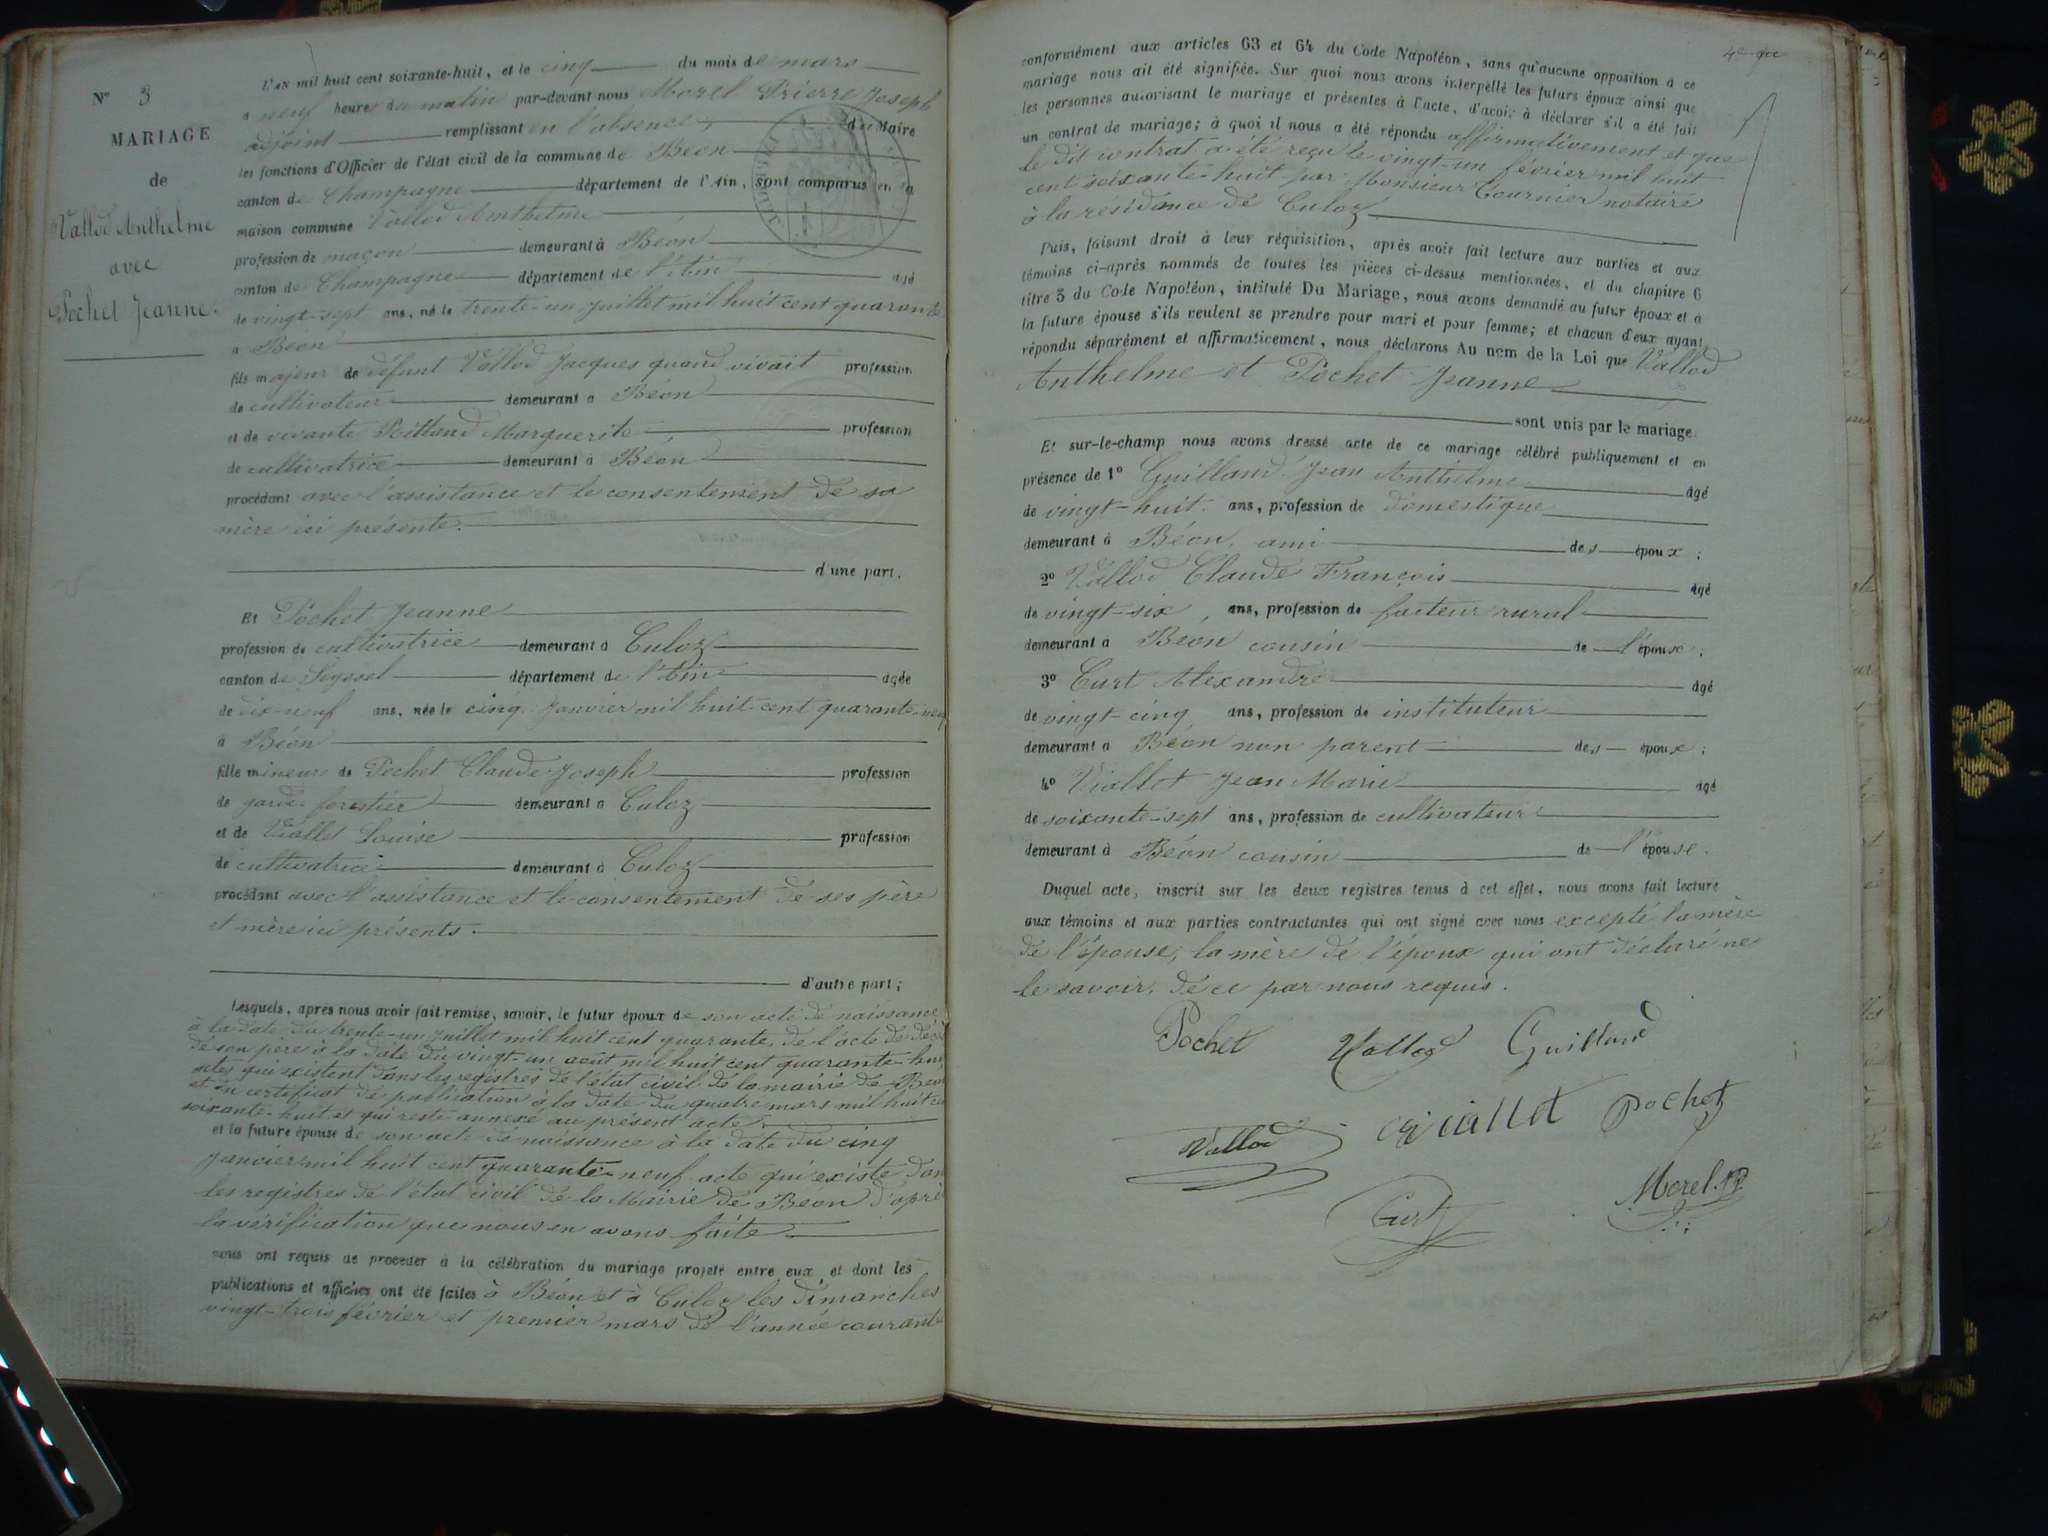 N° 3
MARIAGE
de
Vallod Anthelme
avec
Pochet Jeanne.
L'AN mil huit cent soixante-huit, et le cinq du mois de mars
à neuf heures du matin par-devant nous Morel Pierre Joseph
adjoint remplissant en l'absence du Maire
les fonctions d'Officier de l'état civil de la commune de Béon
canton de Champagne département de l'Ain, sont comparus en la
maison commune Vallod Anthelme
profession de maçon demeurant à Béon
canton de Champagne département de l'Ain âgé
de vingt-sept ans, né le trente-un juillet mil huit cent quarante
à Béon
fils majeur de défunt Vallod Jacques quand vivait profession
de cultivateur demeurant à Béon
et de vivante Marguerite profession
de cultivatrice demeurant à Béon
procédant avec l'assistance et le consentement de sa
mère ici présente.
d'une part.
Et Pochet Jeanne
profession de cultivatrice demeurant à Culoz
canton de Seyssel département de l'Ain âgée
de dix-neuf ans, née le cinq Janvier mil huit cent quarante-neuf
à Béon
fille mineure de Pochet Claude Joseph profession
de garde-forestier demeurant à Culoz
et de Viallet Louise profession
de cultivatrice demeurant à Culoz
procédant avec l'assistance et le consentement de ses père
et mère ici présents.
d'autre part;
Lesquels, après nous avoir fait remise, savoir, le futur époux de son acte de naissance
à la date du trente-un juillet mil huit cent quarante, de l'acte de décès
de son père à la date du vingt-un août mil huit cent quarante-huit
actes qui existent dans les registres de l'état civil de la mairie de Béon
et du certificat de publication à la date du quatre mars mil huit cent
soixante-huit et qui reste annexé au présent acte.
et la future épouse de son acte de naissance à la date du cinq
Janvier mil huit cent quarante-neuf acte qui existe dans
les registres de l'état civil de la Mairie de Béon d'après
la vérification que nous en avons faite
nous ont requis de procéder à la célébration du mariage projeté entre eux et dont les
publications et affiches ont été faites à Béon et à Culoz les dimanches
vingt-trois février et premier mars de l'année courante
conformément aux articles 63 et 64 du Code Napoléon, sans qu'aucune opposition à ce
mariage nous ait été signifiée. Sur quoi nous avons interpellé les futurs époux ainsi que
les personnes autorisant le mariage et présentes à l'acte, d'avoir à déclarer s'il a été fait
un contrat de mariage; à quoi il nous a été répondu affirmativement et que
le dit contrat a été reçu le vingt-un février mil huit
cent soixante-huit par Monsieur Tournier notaire
à la résidence de Culoz
Puis, faisant droit à leur réquisition, après avoir fait lecture aux parties et aux
témoins ci-après nommés de toutes les pièces ci-dessus mentionnées, et du chapitre 6
titre 5 du Code Napoléon, intitulé Du Mariage, nous avons demandé au futur époux et à
la future épouse s'ils veulent se prendre pour mari et pour femme; et chacun d'eux ayant
répondu séparément et affirmativement, nous déclarons Au nom de la Loi que Vallod
Anthelme et Pochet Jeanne
sont unis par le mariage.
Et sur-le-champ nous avons dressé acte de ce mariage célébré publiquement et en
présence de 1° Guilland Jean Anthelme âgé
de vingt-huit ans, profession de domestique
demeurant à Béon, ami des époux;
2° Vallod Claude François âgé
de vingt-six, ans, profession de facteur rural
demeurant à Béon cousin de l'épouse;
3° Curt Alexandre âgé
de vingt-cinq ans, profession de instituteur
demeurant à Béon non parent des époux;
4° Viallet Jean Marie âgé
de soixante-sept ans, profession de cultivateur
demeurant à Béon cousin de l'épouse.
Duquel acte, inscrit sur les deux registres tenus à cet effet, nous avons fait lecture
aux témoins et aux parties contractantes qui ont signé avec nous excepté la mère
de l'épouse, la mère de l'époux qui ont déclaré ne
le savoir, de ce par nous requis.
Pochet Vallod Guilland
Vallod Viallet Pochet
Curt Morel